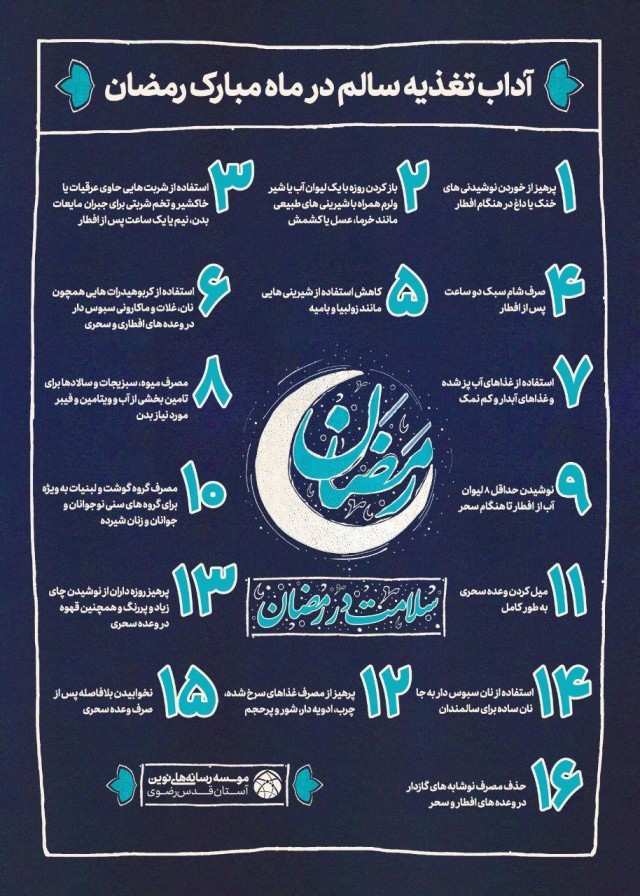 آداب تغذیه سالم در ماه مبارک رمضان
۱
پرهیز از خوردن نوشیدنی های
خنک یا داغ در هنگام افطار
۲
باز کردن روزه با یک لیوان آب یا شیر
ولرم همراه با شیرینی های طبیعی
مانند خرما، عسل یا کشمش
۳
استفاده از شربت هایی حاوی عرقیات یا
خاکشیر و تخم شربتی برای جبران مایعات
بدن، نیم یا یک ساعت پس از افطار
۴
صرف شام سبک دو ساعت
پس از افطار
۵
کاهش استفاده از شیرینی هایی
مانند زولبیا و بامیه
۶
استفاده از کربوهیدرات هایی همچون
نان، غلات و ماکارونی سبوس دار
در وعده های افطاری و سحری
۷
استفاده از غذاهای آب پز شده
و غذاهای آبدار و کم نمک
۸
مصرف میوه، سبزیجات و سالادها برای
تامین بخشی از آب و ویتامین و فیبر
مورد نیاز بدن
رمضان
۹
نوشیدن حداقل ۸ لیوان
آب از افطار تا هنگام سحر
۱۰
مصرف گروه گوشت و لبنیات به ویژه
برای گروه های سنی نوجوانان و
جوانان و زنان شیرده
۱۱
میل کردن وعده سحری
به طور کامل
سلامت در رمضان
۱۳
پرهیز روزه داران از نوشیدن چای
زیاد و پررنگ و همچنین قهوه
در وعده سحری
۱۴
استفاده از نان سبوس دار به جا
نان ساده برای سالمندان
۱۲
پرهیز از مصرف غذاهای سرخ شده،
چرب، ادویه دار، شور و پرحجم
۱۵
نخوابیدن بلافاصله پس از
صرف وعده سحری
۱۶
حذف مصرف نوشابه های گازدار
در وعده های افطار و سحر
موسسه رسانه‌های نوین
آستان قدس رضوی